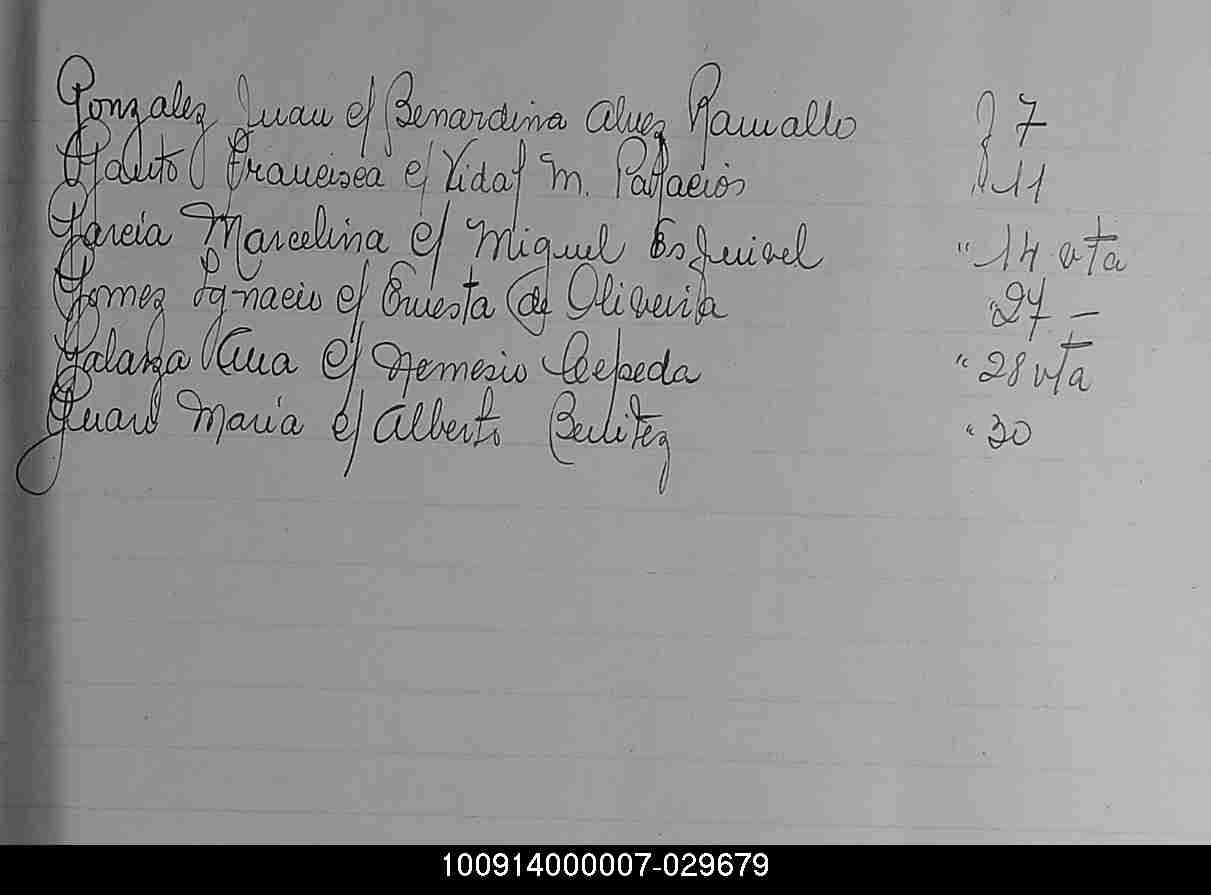 Gonzalez Juan c/ Benardina Alves Ramallo f 7
Gauto Francisca c/ Vidal M. Pallacios " 11
García Marcelina c/ Miguel Esquivel " 14 vta
Gomez Ignacio c/ Ernesta de Oliveira " 27 –
Galarza Ana c/ Nemesio Cepeda " 28 vta
María c/ Alberto Benitez " 30
100914000007-029679